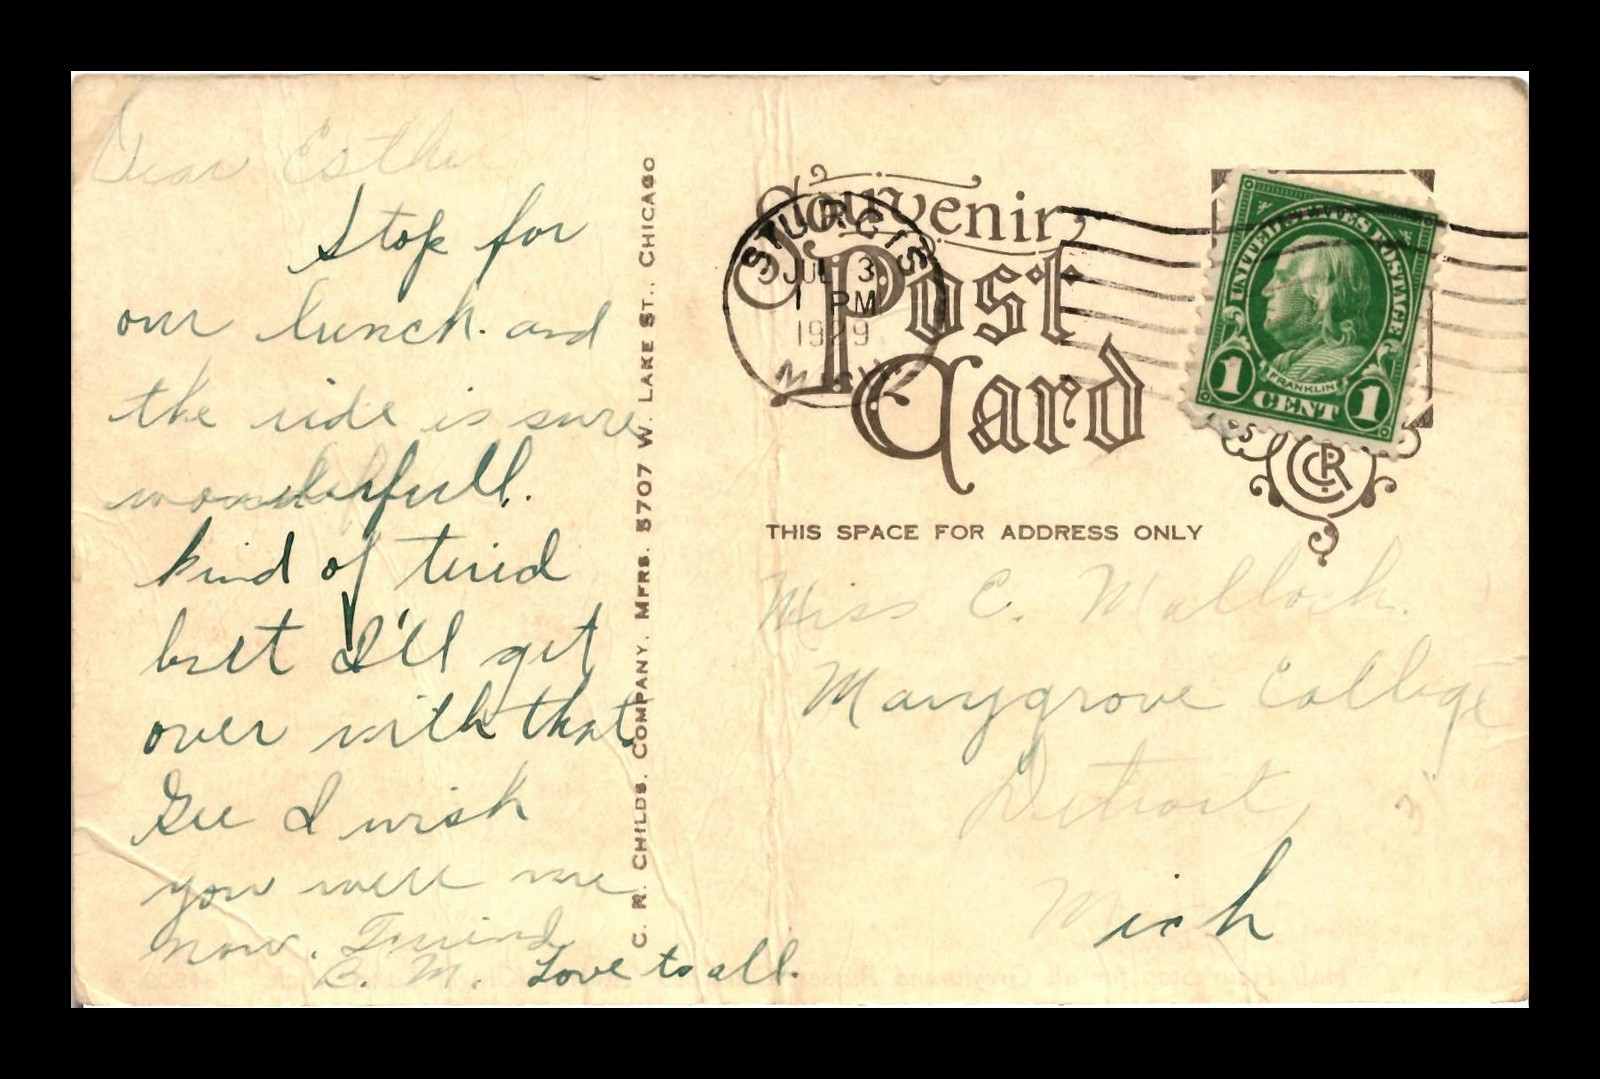 Dear Esther
Stop for
our lunch. and
the ride is sure
wonderfull.
kind of tired
but I'll get
over with that
Gee I wish
you were me
now. Friend
B. M. Love to all.
C. R. CHILDS. COMPANY. MFRS. 5707 W. LAKE ST., CHICAGO
Souvenir
Post
Card
STURGIS
JUL 3
1 PM
1929
MICH.
UNITED STATES POSTAGE
FRANKLIN
1 CENT 1
CRC
THIS SPACE FOR ADDRESS ONLY
Miss C. Malloch.
Marygrove College
Detroit,
Mich